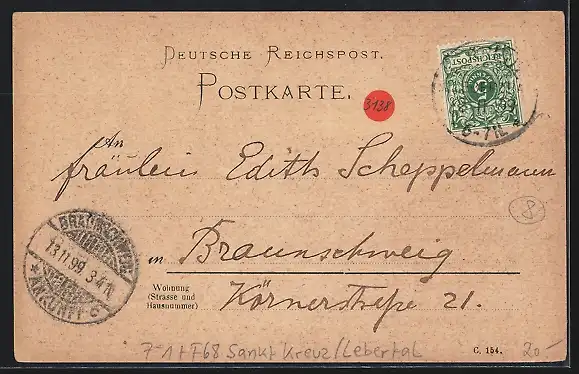 DEUTSCHE REICHSPOST.
POSTKARTE.
REICHSPOST
5
99
6-7N.
3138
An
fräulein Edith Scheppelmann
8
in Braunschweig
BRAUNSCHWEIG
13.11.99. 3-4N.
* ANKUNFT c
Wohnung
(Strasse und
Hausnummer)
Körnerstraße 21.
7-1 + F68 Sankt Kreuz/Lebertal
C. 154.
20.-